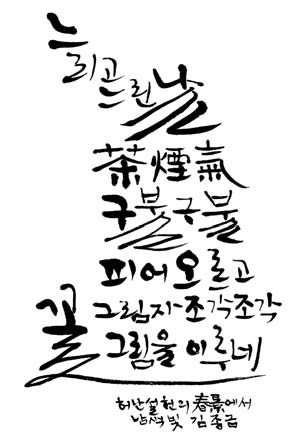 느리고
느린 날
茶煙氣
구불구불
피어오르고
꽃 그림자 조각조각
그림을 이루네
허난설헌의 春景에서